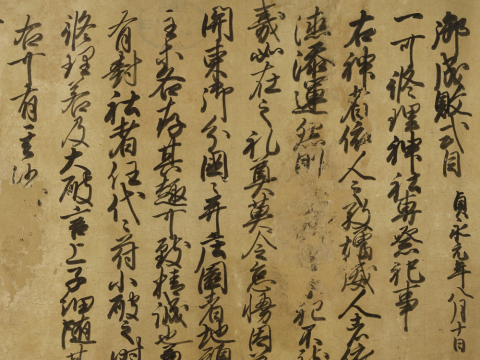 御成敗式目 貞永元年八月十日
一可修理神社専祭祀事
右神者依人之敬増威人者依
添運然則 祀不致
如在之礼奠莫令怠慢因
関東御分国々并庄園者地頭
主等各存其趣可致精誠也兼
有封社者任代々符小破之時
修理若及大破言上子細随其
左右可有其沙